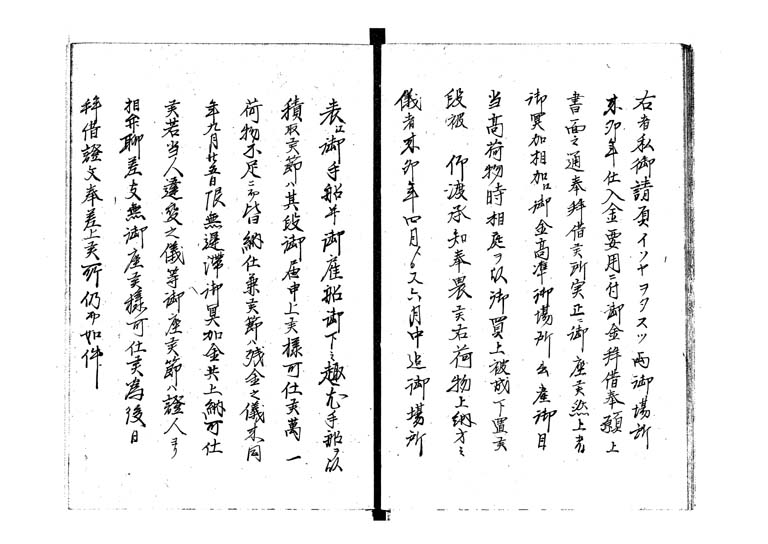 右者私御請負イソヤヲタスツ両御場所
来卯年仕入金要用ニ付御金拝借奉願上
書面之通奉拝借候所実正ニ御座候然上者
御冥加相加エ御金高準御場所出産御目
当高荷物時相庭ヲ以御買上被成下置候
段被 仰渡承知奉畏候右荷物上納方之
儀者来卯年四月ゟ又六月中迄御場所
表江御手船并御雇船御下之趣尤手船ヲ以
積取候節ハ其段御届申上候様可仕候萬一
荷物不足ニ而皆納仕兼候節ハ残金之儀来同
年九月廿五日限無遅滞御冥加金共上納可仕
候若当人違変之儀等御座候節ハ證人ゟ
相弁聊差支無御座候様可仕候為後日
拝借證文奉差上候所仍而如件